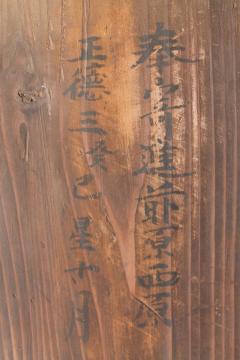 奉寄進前原西原
正徳三癸巳星十月